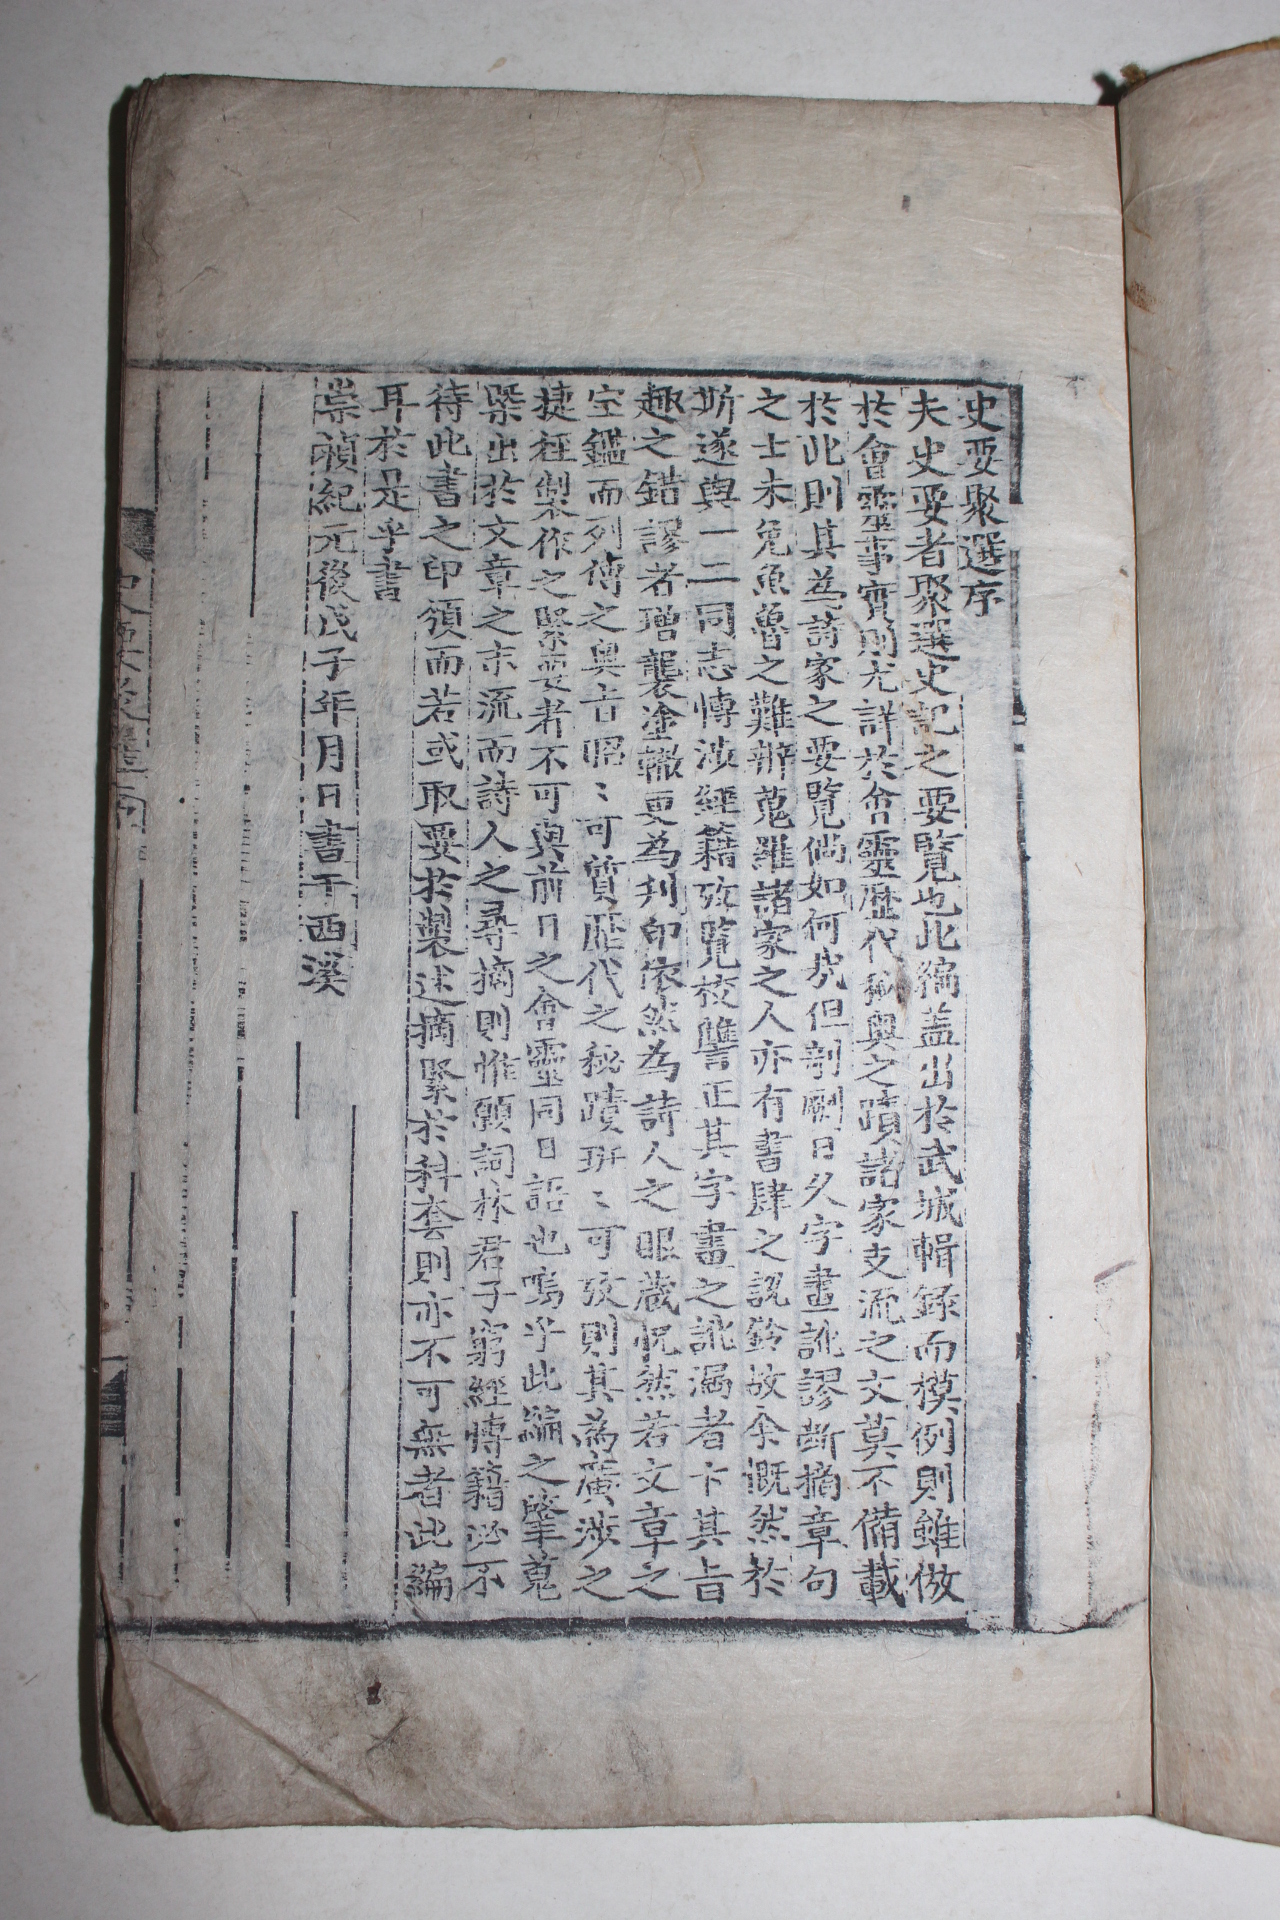 史要聚選序
夫史要者聚選史記之要覽也此編盖出於武城輯録而模例則雖倣
於會靈事實則尤詳於會靈歷代秘奥之蹟諸家支流之文莫不備載
於此則其爲詩家之要覽倘如何㢤但剞劂日久字畫訛謬断摘章句
之士未免魚魯之難辨蒐羅諸家之人亦有書肆之訛舛故余慨然於
斯遂與一二同志博涉經籍攷覽校讐正其字畫之訛漏者卞其旨
趣之錯謬者增襲塗轍更为刊印依然为詩人之眼藏怳然若文章之
空鑑而列傳之奥旨昭〻可質歷代之秘蹟班〻可攷則其為廣涉之
捷徑製作之緊要者不可與前日之會靈同日語也嗚乎此編之肇蒐
槩出於文章之末流而詩人之尋摘則惟願詞林君子窮經博籍必不
待此書之印頒而若或取要於製述摘緊於科套則亦不可無者此編
耳於是乎書
崇禎紀元後戊子年月日書于西溪
史要聚選 序